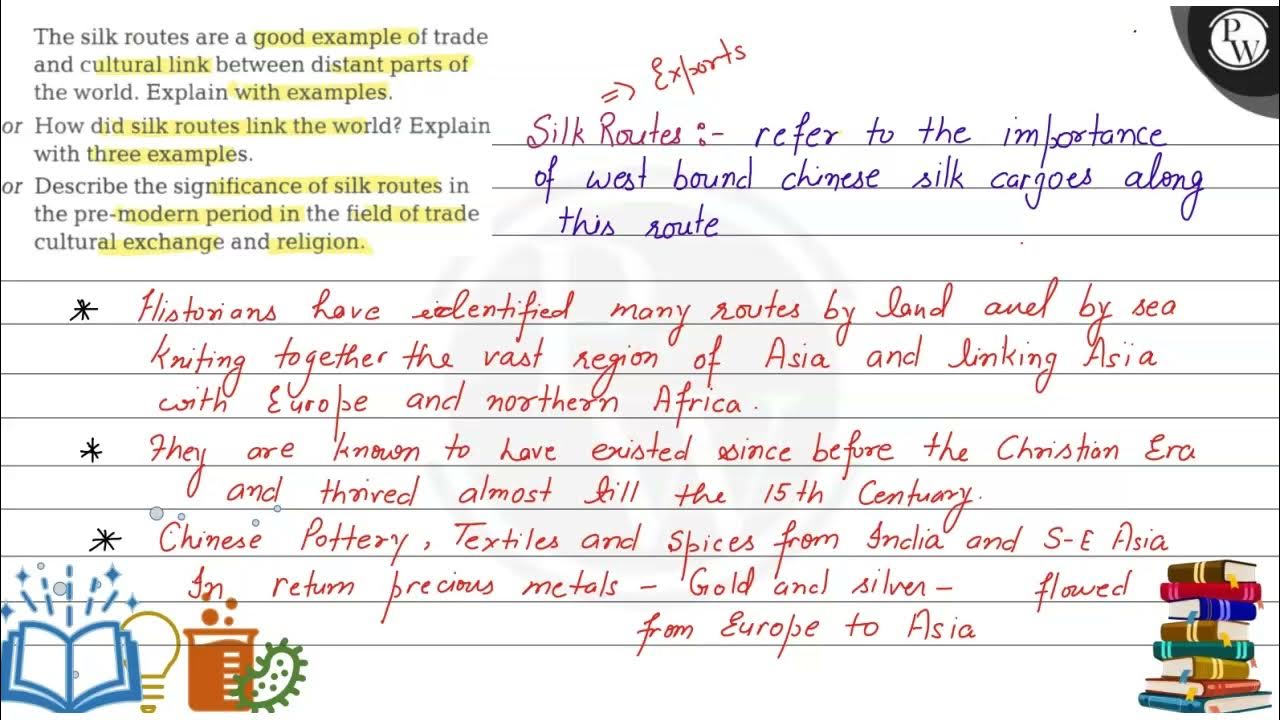 The silk routes are a good example of trade
and cultural link between distant parts of
the world. Explain with examples.
or How did silk routes link the world? Explain
with three examples.
or Describe the significance of silk routes in
the pre-modern period in the field of trade
cultural exchange and religion.
PW
=> Exports
Silk Routes :- refer to the importance
of west bound chinese silk cargoes along
this route
* Historians have identified many routes by land and by sea
Kniting together the vast region of Asia and linking Asia
with Europe and northern Africa.
* They are known to have existed since before the Christian Era
and thrived almost till the 15th Centuary.
* Chinese Pottery, Textiles and Spices from India and S-E Asia
In return precious metals - Gold and silver - flowed
from Europe to Asia